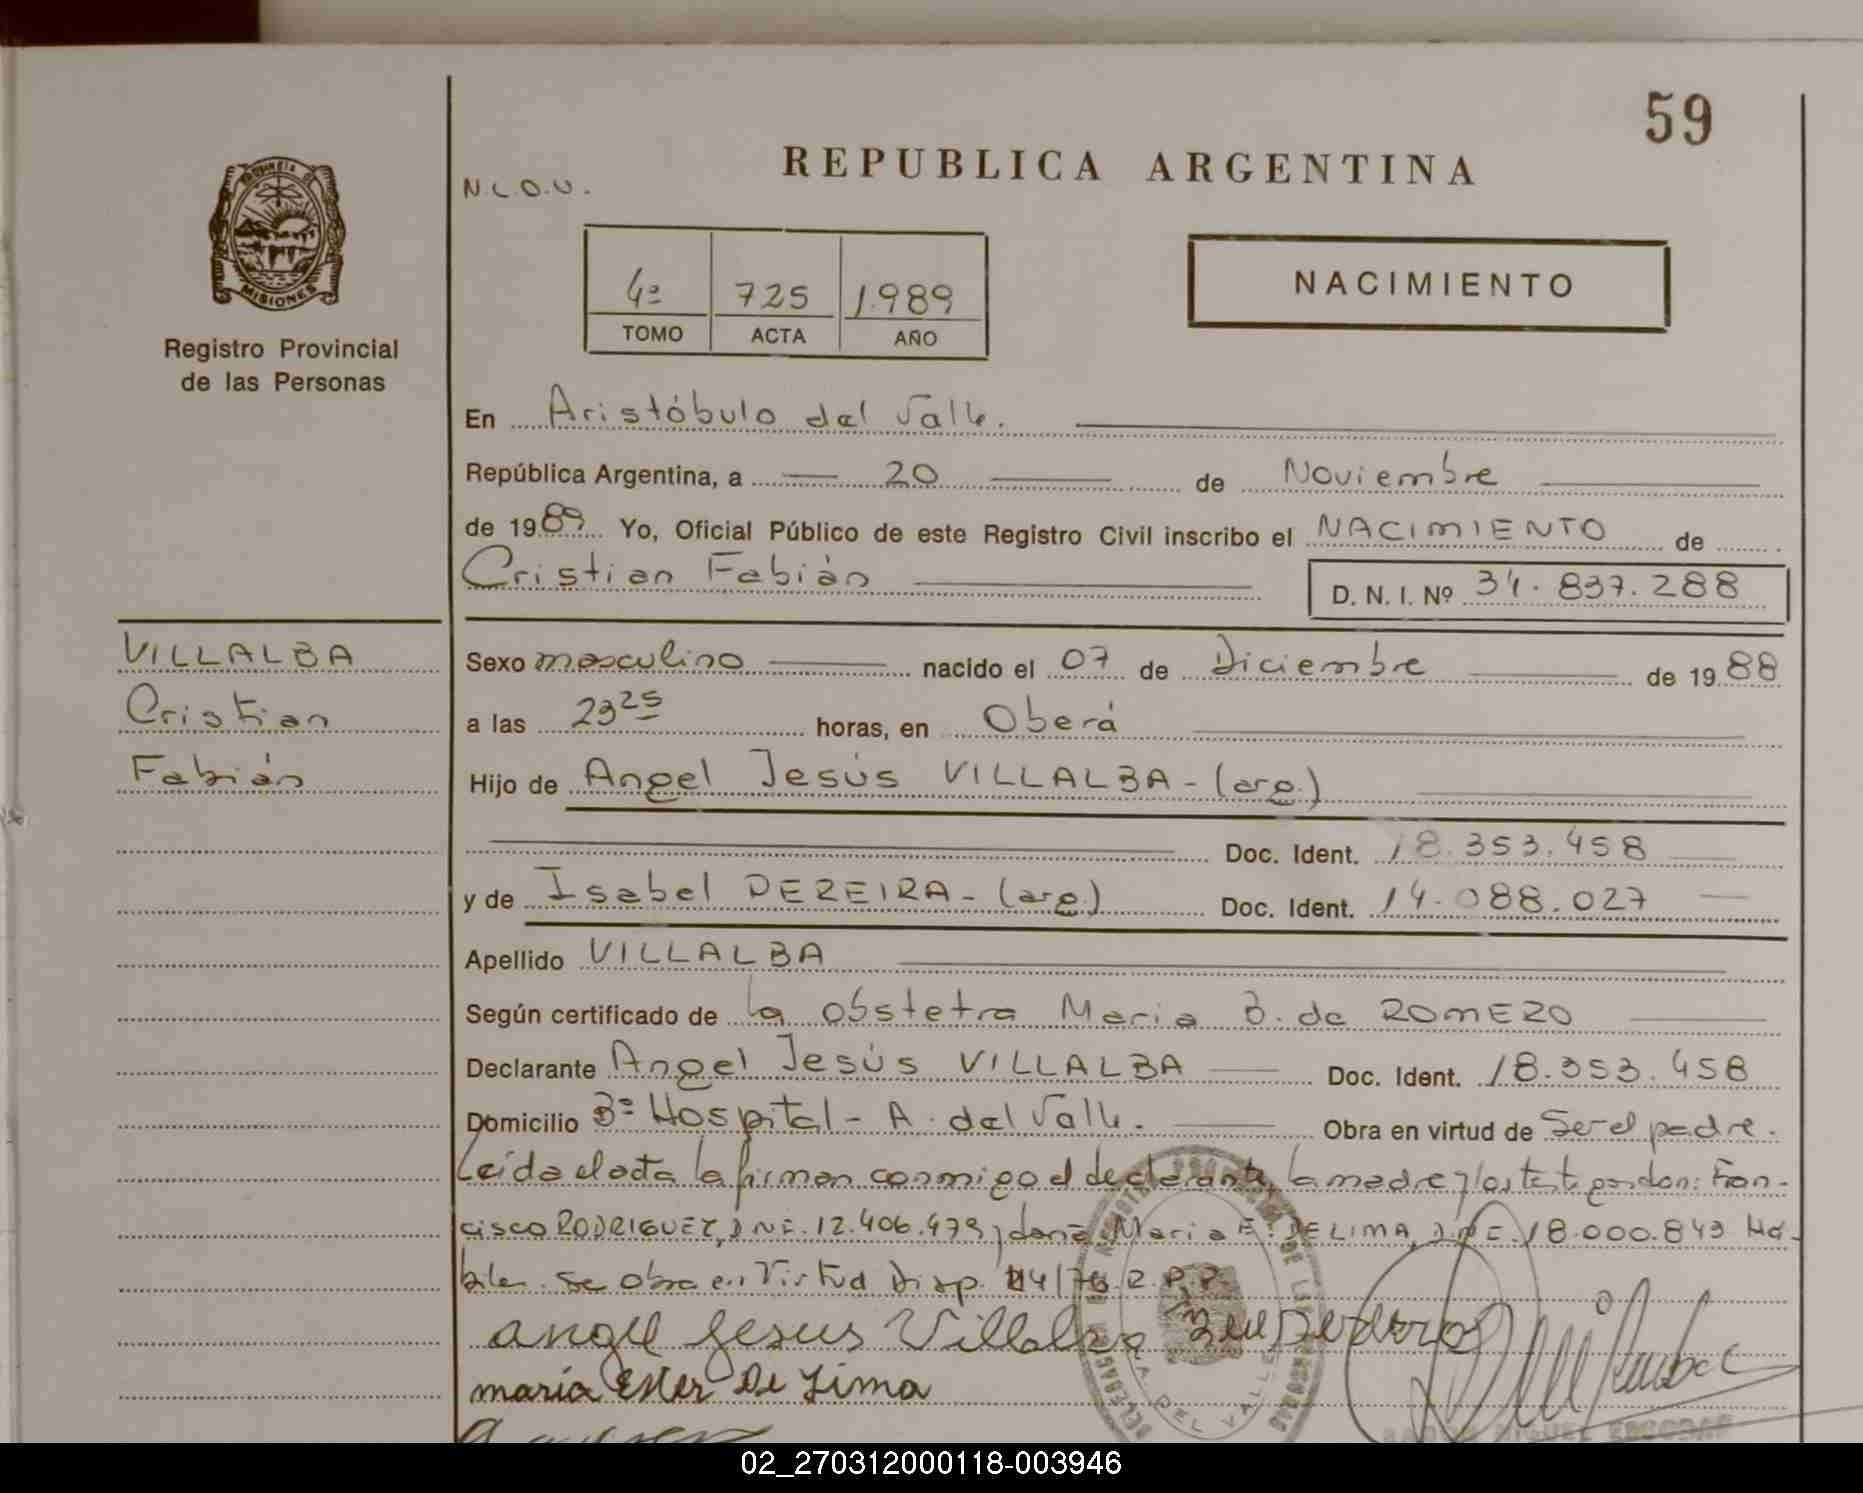 59
REPUBLICA ARGENTINA
N.L.O.U.
PROVINCIA DE
MISIONES
Registro Provincial
de las Personas
4º 725 1.989
TOMO ACTA AÑO
NACIMIENTO
En Aristóbulo del Valle.
República Argentina, a 20 de Noviembre
de 1989 Yo, Oficial Público de este Registro Civil inscribo el NACIMIENTO de
Cristian Fabián D. N. I. Nº 34.837.288
VILLALBA
Cristian
Fabián
Sexo masculino nacido el 07 de Diciembre de 1988
a las 23 25 horas, en Oberá
Hijo de Angel Jesús VILLALBA - (arg.)
Doc. Ident. 18.353.458
y de Isabel PEREIRA - (arg.) Doc. Ident. 14.088.027
Apellido VILLALBA
Según certificado de la obstetra Maria B. de ROMERO
Declarante Angel Jesús VILLALBA Doc. Ident. 18.353.458
Domicilio Bº Hospital - A. del Valle. Obra en virtud de Ser el padre.
Leída el acta la firman conmigo el declarante, la madre y los testigos don: Fran-
cisco RODRIGUEZ, D.N.I. 12.406.479 y doña Maria E. DE LIMA, 18.000.849 Há-
biles. Se obra en Virtud Disp. /76 R.P.P.
angel Jesus Villalba
maria Ester De Lima
A. DEL VALLE
MIGUEL ESCOBAR
02_270312000118-003946